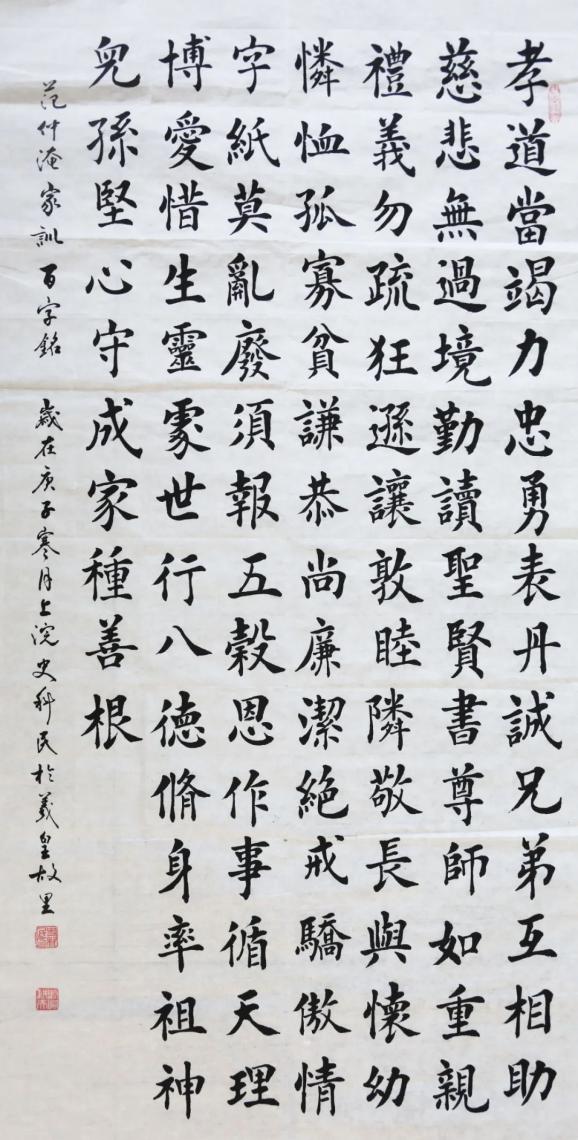 孝道當竭力忠勇表丹誠兄弟互相助
慈悲無過境勤讀聖賢書尊師如重親
禮義勿疏狂遜讓敦睦隣敬長與懷幼
憐恤孤寡貧謙恭尚廉潔絕戒驕傲情
字紙莫亂廢須報五穀恩作事循天理
博愛惜生靈處世行八德脩身率祖神
兒孫堅心守成家種善根
范仲淹家訓百字銘 歲在庚子寒月上浣史科民於羲皇故里